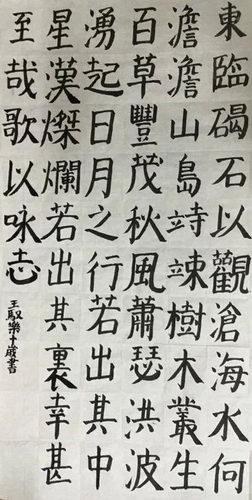 東臨碣石以觀滄海水何
澹澹山島峙竦樹木叢生
百草豐茂秋風蕭瑟洪波
湧起日月之行若出其中
星漢燦爛若出其裏幸甚
至哉歌以咏志
王馭樂十歲書